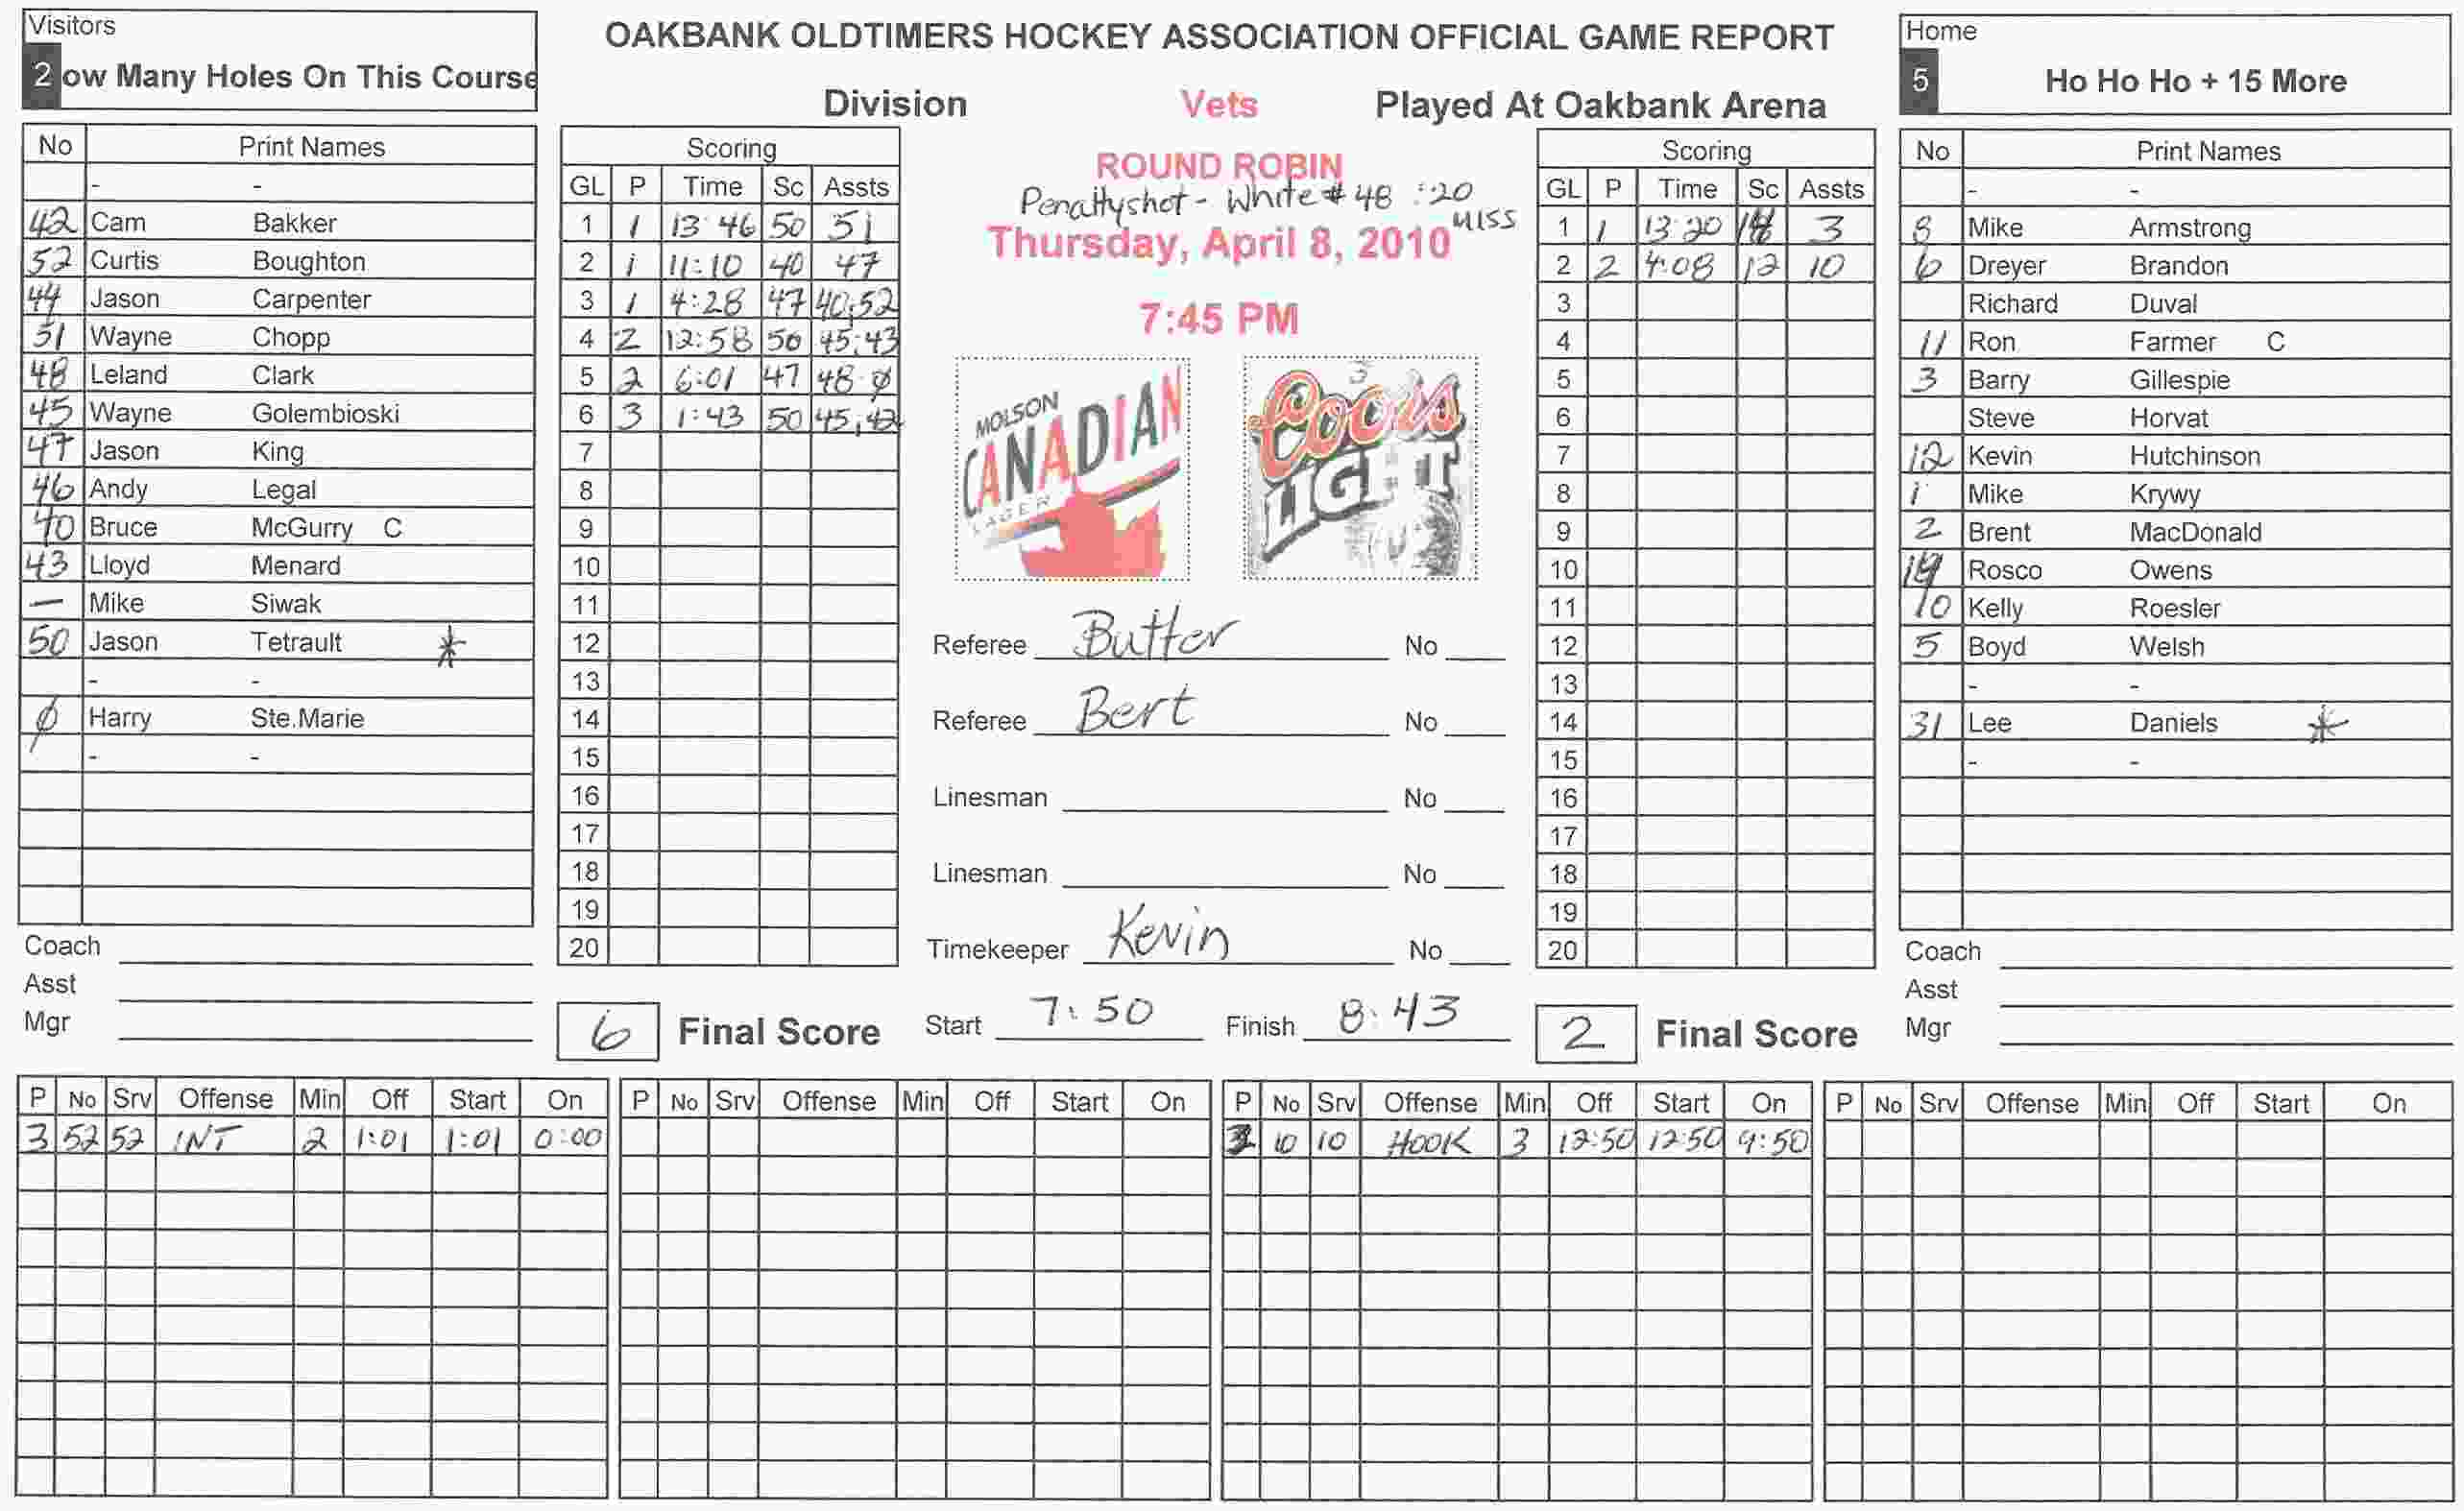 Visitors
2 ow Many Holes On This Course
OAKBANK OLDTIMERS HOCKEY ASSOCIATION OFFICIAL GAME REPORT
Division Vets Played At Oakbank Arena
Home
5 Ho Ho Ho + 15 More
ROUND ROBIN
Penaltyshot - White # 48 :20
MISS
Thursday, April 8, 2010
7:45 PM
No Print Names
- -
42 Cam Bakker
52 Curtis Boughton
44 Jason Carpenter
51 Wayne Chopp
48 Leland Clark
45 Wayne Golembioski
47 Jason King
46 Andy Legal
40 Bruce McGurry C
43 Lloyd Menard
— Mike Siwak
50 Jason Tetrault *
- -
Ø Harry Ste.Marie
- -
Coach
Asst
Mgr
Scoring
GL P Time Sc Assts
1 1 13:46 50 51
2 1 11:10 40 47
3 1 4:28 47 40,52
4 2 12:58 50 45,43
5 2 6:01 47 48 Ø
6 3 1:43 50 45,42
7
8
9
10
11
12
13
14
15
16
17
18
19
20
6 Final Score
MOLSON
CANADIAN
LAGER
Coors
LIGHT
Referee Butter No
Referee Bert No
Linesman No
Linesman No
Timekeeper Kevin No
Start 7:50 Finish 8:43
Scoring
GL P Time Sc Assts
1 1 13:20 3
2 2 4:08 12 10
3
4
5
6
7
8
9
10
11
12
13
14
15
16
17
18
19
20
2 Final Score
No Print Names
- -
8 Mike Armstrong
6 Dreyer Brandon
Richard Duval
11 Ron Farmer C
3 Barry Gillespie
Steve Horvat
12 Kevin Hutchinson
1 Mike Krywy
2 Brent MacDonald
Rosco Owens
10 Kelly Roesler
5 Boyd Welsh
- -
31 Lee Daniels *
- -
Coach
Asst
Mgr
P No Srv Offense Min Off Start On
3 52 52 INT 2 1:01 1:01 0:00
P No Srv Offense Min Off Start On
P No Srv Offense Min Off Start On
10 10 HOOK 3 12:50 12:50 9:50
P No Srv Offense Min Off Start On